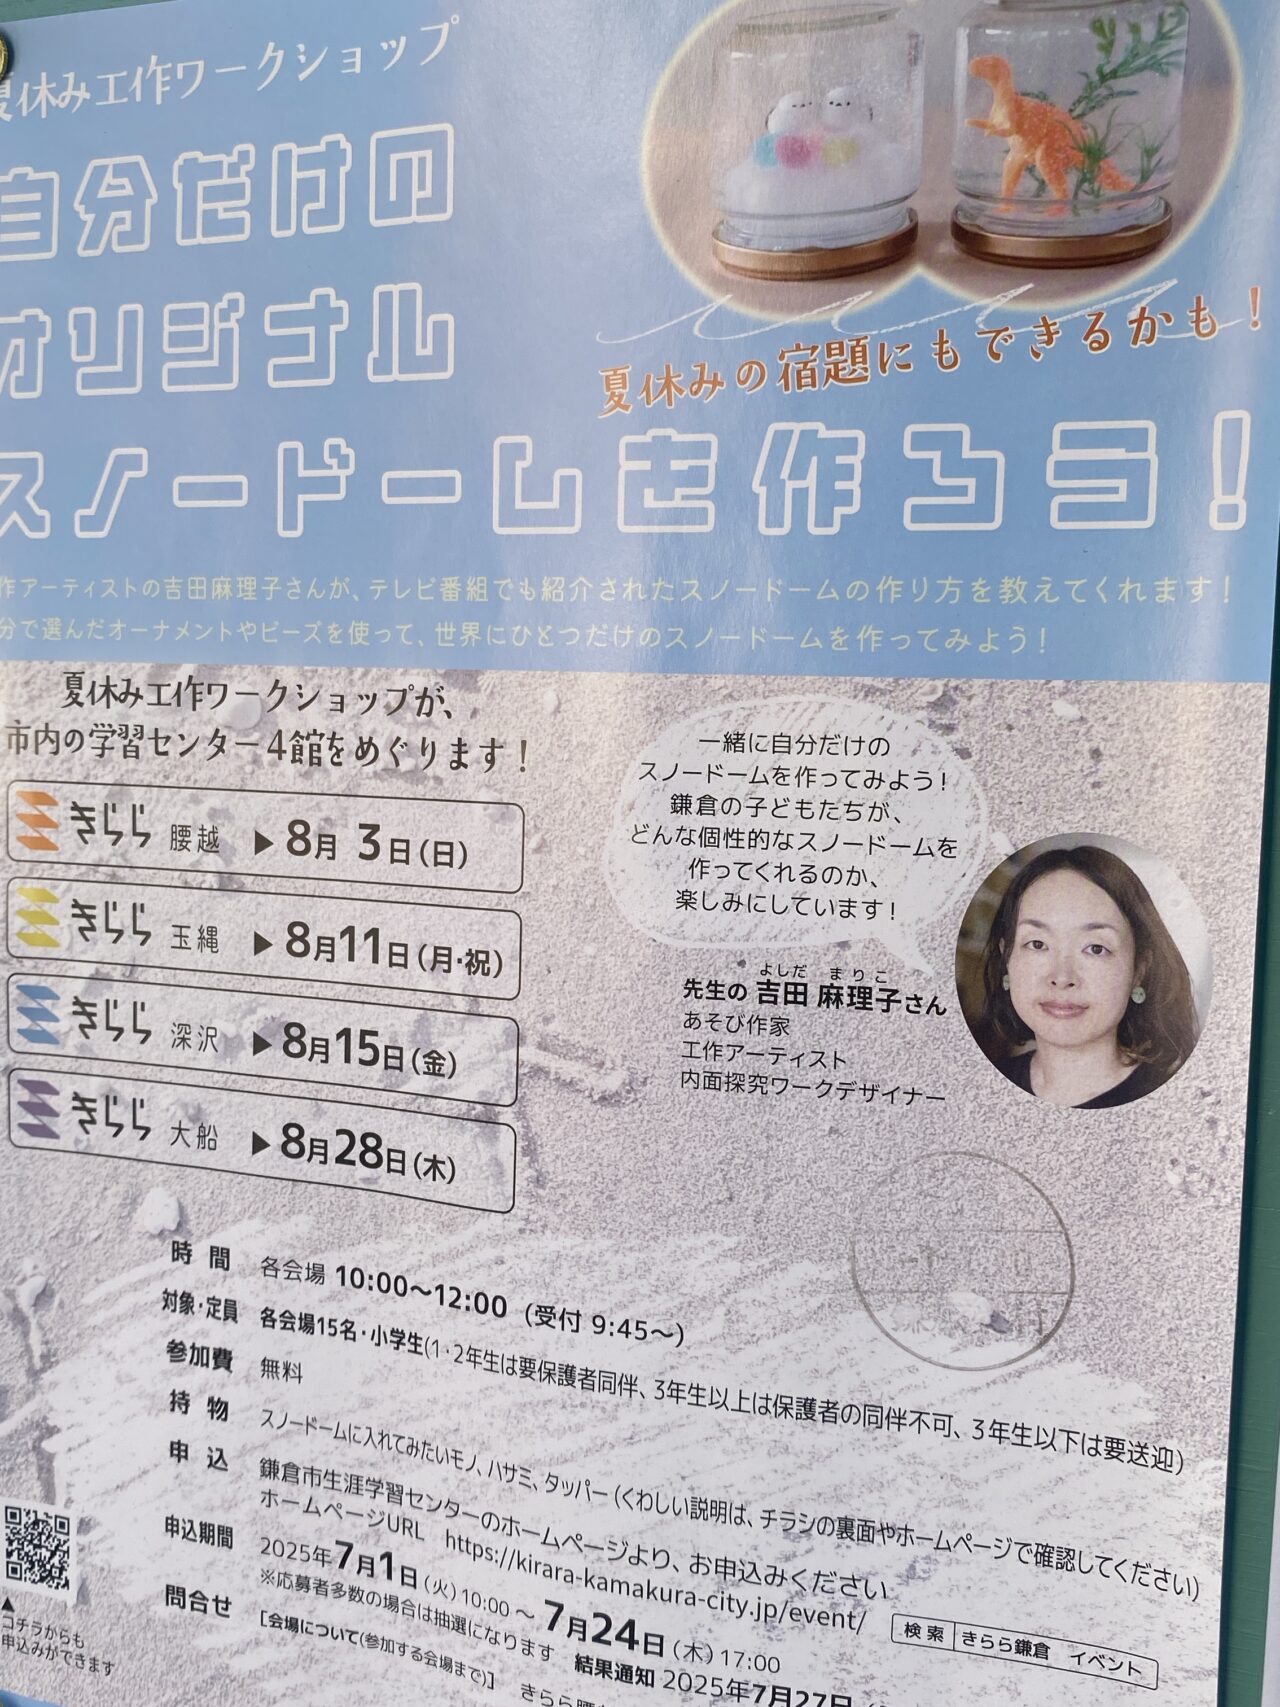 夏休み工作ワークショップ
自分だけの
オリジナル
夏休みの宿題にもできるかも！
スノードームを作ろう！
作アーティストの吉田麻理子さんが、テレビ番組でも紹介されたスノードームの作り方を教えてくれます！
分で選んだオーナメントやビーズを使って、世界にひとつだけのスノードームを作ってみよう！
夏休み工作ワークショップが、
市内の学習センター4館をめぐります！
きらら 腰越 ▶ 8月 3日(日)
きらら 玉縄 ▶ 8月11日(月・祝)
きらら 深沢 ▶ 8月15日(金)
きらら 大船 ▶ 8月28日(木)
一緒に自分だけの
スノードームを作ってみよう！
鎌倉の子どもたちが、
どんな個性的なスノードームを
作ってくれるのか、
楽しみにしています！
よしだ まりこ
先生の 吉田 麻理子さん
あそび作家
工作アーティスト
内面探究ワークデザイナー
時間 各会場 10:00～12:00 (受付 9:45～)
対象・定員 各会場15名・小学生(1・2年生は要保護者同伴、3年生以上は保護者の同伴不可、3年生以下は要送迎)
参加費 無料
持物 スノードームに入れてみたいモノ、ハサミ、タッパー(くわしい説明は、チラシの裏面やホームページで確認してください)
申込 鎌倉市生涯学習センターのホームページより、お申込みください
ホームページURL https://kirara-kamakura-city.jp/event/
検索 きらら鎌倉 イベント
申込期間 2025年7月1日(火)10:00～7月24日(木)17:00
※応募者多数の場合は抽選になります 結果通知 2025年7月27日
問合せ [会場について(参加する会場まで)]
▲
コチラからも
申込みができます